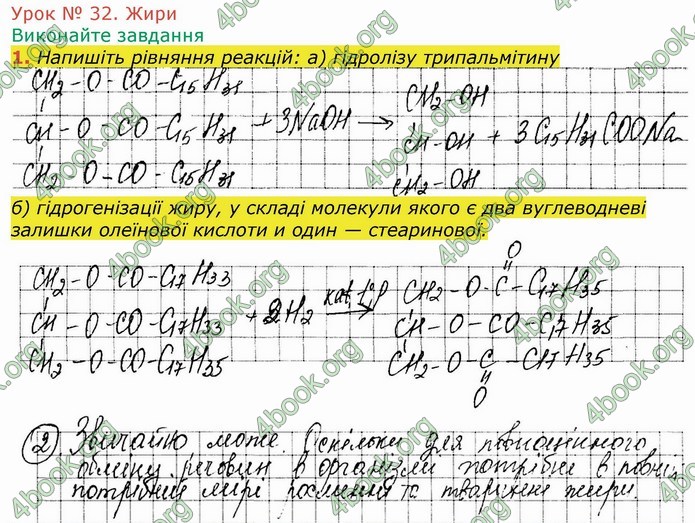 Урок № 32. Жири
Виконайте завдання
1. Напишіть рівняння реакцій: а) гідролізу трипальмітину
CH2 - O - CO - C15H31
CH - O - CO - C15H31 + 3NaOH → CH2 - OH
CH - OH + 3C15H31COONa
CH2 - O - CO - C15H31
CH2 - OH
б) гідрогенізації жиру, у складі молекули якого є два вуглеводневі
залишки олеїнової кислоти и один — стеаринової.
O
CH2 - O - CO - C17H33
CH2 - O - C - C17H35
CH - O - CO - C17H33 + 2H2 kat, t°, p →
CH - O - CO - C17H35
CH2 - O - CO - C17H35
CH2 - O - C - C17H35
O
2 Звичайно може. Оскільки для повноцінного
обміну речовин в організмі потрібне в повній
потрібній мірі рослинні та тваринні жири.
4book.org